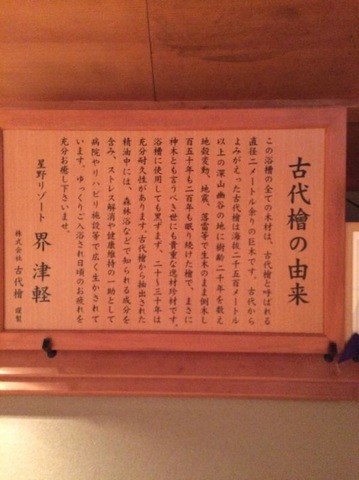 古代檜の由来
この浴槽の全ての木材は、古代檜と呼ばれる
直径二メートル余りの巨木です。古代から
よみがえった古代檜は海抜二千五百メートル
以上の深山幽谷の地に樹齢二千年を数え
地殻変動、地震、落雷等で生木のまま倒木し
百五十年も二百年も眠り続けた檜で、まさに
神木とも言うべき世にも貴重な逸材珍材です。
浴槽に使用しても黒ずまず、二十〜三十年は
充分耐久性があります。古代檜から抽出された
精油中には、森林浴などで知られる成分を
含み、ストレス解消や健康維持の一助として
病院やリハビリ施設等で広く生かされて
います。ゆっくりご入浴され日頃のお疲れを
充分お癒し下さいませ。
星野リゾート 界 津軽
株式会社 古代檜 謹製